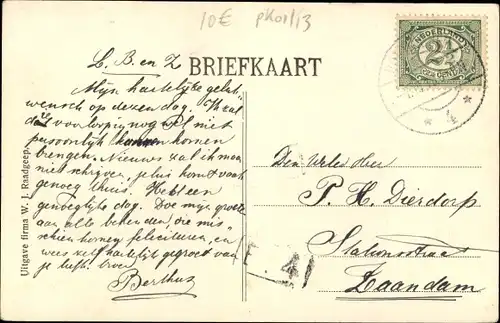 10€ pk01/13
BRIEFKAART
NEDERLAND
2½
CENT
L. B. en Z
Mijn hartelijke geluk-
wensch op dezen dag. Ik zal
dat voorloopig nog wel niet
persoonlijk kunnen komen
brengen. Nieuws zal ik maar
niet schrijven, je komt toch
genoeg thuis. Heb een
genoeglijke dag. Doe mijn groete
aan alle bekenden, die mis-
schien komen feliciteeren, en
wees zelf hartelijk gegroet van
je liefh. broer
Berthus
Uitgave firma W. J. Raadgeep,
Den Weled. Heer
P. H. Dierdorp
Stationsstraat
Zaandam
4
41